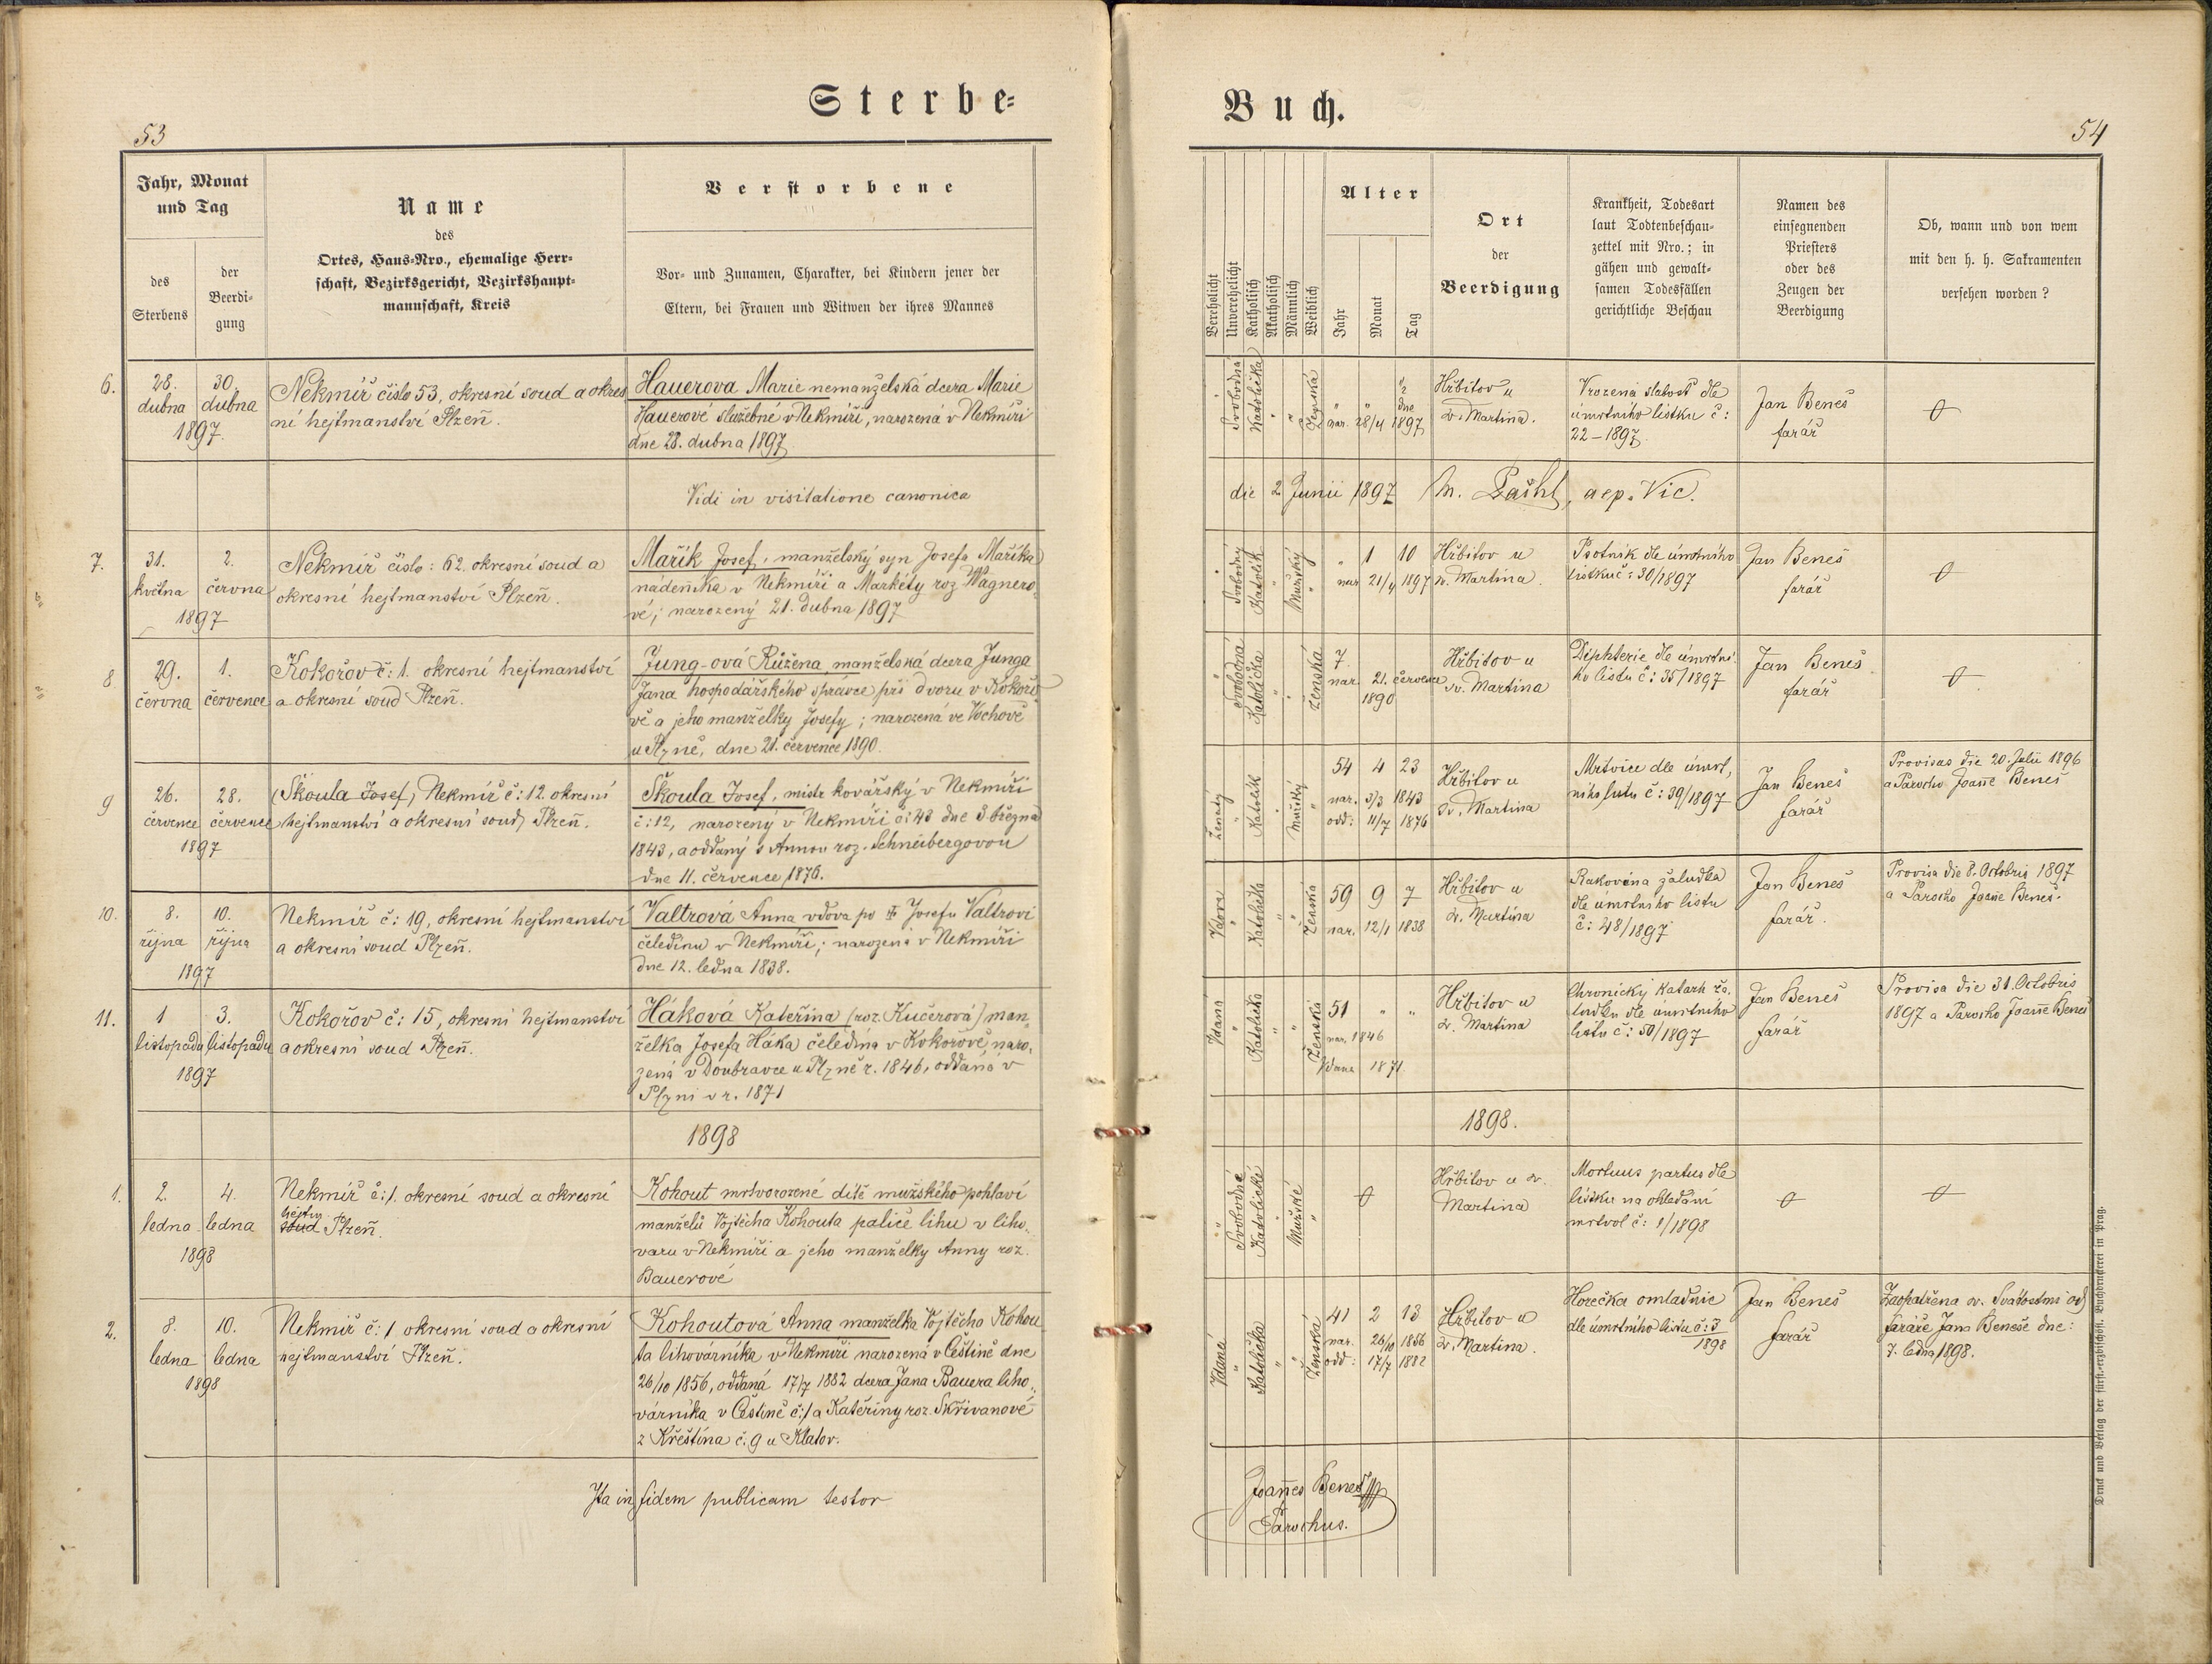 Sterbe-
Buch.
53
54
Jahr, Monat
und Tag
des
Sterbens
der
Beerdi-
gung
Name
des
Ortes, Haus-Nro., ehemalige Herr-
schaft, Bezirksgericht, Bezirkshaupt-
mannschaft, Kreis
Verstorbene
Vor- und Zunamen, Charakter, bei Kindern jener der
Eltern, bei Frauen und Witwen der ihres Mannes
Verehelicht
Unverehelicht
Katholisch
Akatholisch
Männlich
Weiblich
Alter
Jahr
Monat
Tag
Ort
der
Beerdigung
Krankheit, Todesart
laut Todtenbeschau-
zettel mit Nro.; in
gähen und gewalt-
samen Todesfällen
gerichtliche Beschau
Namen des
einsegnenden
Priesters
oder des
Zeugen der
Beerdigung
Ob, wann und von wem
mit den h. h. Sakramenten
versehen worden?
6.
28.
dubna
30.
dubna
1897.
Nekmíř číslo 53, okresní soud a okres
ní hejtmanství Plzeň.
Hauerova Marie nemanželská dcera Marie
Hauerové služebné v Nekmíři, narozená v Nekmíři
dne 28. dubna 1897
Svobodná
Katolička
Ženská
dne
nar. 28/4 1897
Hřbitov u
sv. Martina.
Vrozená slabost dle
úmrtního lístku č:
22 - 1897.
Jan Beneš
farář
Vidi in visitatione canonica
die 2 Junii 1897
aep. Vic.
7.
31.
května
2.
června
1897
Nekmíř číslo: 62. okresní soud a
okresní hejtmanství Plzeň.
Mařík Josef, manželský syn Josefa Maříka
nádenníka v Nekmíři a Markéty roz Wagnero-
vé; narozený 21. dubna 1897
Svobodný
Katolík
Mužský
1 10
nar 21/4 1897
Hřbitov u
sv. Martina.
Psotník dle úmrtního
lístku č: 30/1897
Jan Beneš
farář
8.
29.
června
1.
července
Kokořov č: 1. okresní hejtmanství
a okresní soud Plzeň.
Jung-ová Růžena, manželská dcera Junga
Jana hospodářského správce při dvoru v Kokořo-
vě a jeho manželky Josefy; narozená ve Vochově
u Plzně, dne 21. července 1890.
Svobodná
Katolička
Ženská
7
nar. 21. července
1890
Hřbitov u
sv. Martina
Diphterie dle úmrtní-
ho listu č: 35/1897
Jan Beneš
farář
9
26.
července
28.
července
1897
(Škoula Josef, Nekmíř č: 12. okresní
hejtmanství a okresní soud) Plzeň.
Škoula Josef, mistr kovářský v Nekmíři
č: 12, narozený v Nekmíři č: 43 dne 3 března
1843, a oddaný s Annou roz. Schneibergovou
dne 11. července 1876.
Ženatý
Katolík
Mužský
54 4 23
nar. 3/3 1843
odd: 11/7 1876
Hřbitov u
Sv. Martina
Mrtvice dle úmrt,
ního listu č: 39/1897
Jan Beneš
farář
Provisus die 20. Julii 1896
a Parocho Joanne Beneš
10.
8.
října
10.
října
1897
Nekmíř č: 19, okresní hejtmanství
a okresní soud Plzeň.
Valtrová Anna vdova po † Josefu Valtrovi
čeledínu v Nekmíři; narozená v Nekmíři
dne 12. ledna 1838.
Vdova
Katolička
Ženská
59 9 7
nar. 12/1 1838
Hřbitov u
sv. Martina
Rakovina žaludka
dle úmrtního listu
č: 48/1897
Jan Beneš
farář.
Provisa die 8. Octobris 1897
a Parocho Joane Beneš.
11.
1
listopadu
3.
listopadu
1897
Kokořov č: 15, okresní hejtmanství
a okresní soud Plzeň.
Háková Kateřina (roz. Kučerová) man-
želka Josefa Háka čeledína v Kokořově, naro-
zená v Doubravce u Plzně r. 1846, oddaná v
Plzni v r. 1871
Vdaná
Katolička
Ženská
51
nar. 1846
Vdaná 1871
Hřbitov u
sv. Martina
Chronický katarh ža-
ludku dle úmrtního
listu č: 50/1897
Jan Beneš
farář
Provisa die 31. Octobris
1897 a Parocho Joanne Beneš
1898
1898.
1.
2.
ledna
4.
ledna
1898
Nekmíř č: 1. okresní soud a okresní
hejtm.
soud Plzeň.
Kohout mrtvorozené dítě mužského pohlaví
manželů Vojtěcha Kohouta paliče lihu v liho-
varu v Nekmíři a jeho manželky Anny roz.
Bauerové
Svobodné
Katolické
Mužské
Hřbitov u sv.
Martina
Mortuus partus dle
lístku na ohledání
mrtvol č: 1/1898
2.
8.
ledna
10.
ledna
1898
Nekmíř č: 1 okresní soud a okresní
hejtmanství Plzeň.
Kohoutová Anna manželka Vojtěcha Kohou-
ta lihovárníka v Nekmíři narozená v Čestině dne
26/10 1856, oddaná 17/7 1882 dcera Jana Bauera liho-
várníka v Čestině č: 1 a Kateřiny roz. Skřivanové
z Křeština č. 9 u Klatov.
Vdaná
Katolička
Ženská
41 2 13
nar. 26/10 1856
odd: 17/7 1882
Hřbitov u
sv. Martina.
Horečka omladnic
dle úmrtního listu č: 3/1898
Jan Beneš
farář
Zaopatřena sv. Svátostmi od
faráře Jana Beneše dne:
7. ledna 1898.
Ita in fidem publicam testor
Joannes Beneš
Parochus.
Druck und Verlag der fürst.-erzbischöfl. Buchdruckerei in Prag.